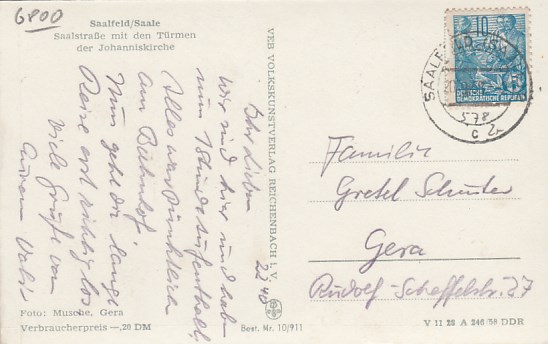 6800
Saalfeld/Saale
Saalstraße mit den Türmen
der Johanniskirche
Ihr Lieben
wir sind hier und haben
nun 1 Stunde Aufenthalt,
Alles war pünktlich
am Bahnhof.
Nun geht die lange
Reise erst richtig los
Viele Grüße von
Eurem
Foto: Musche, Gera
Verbraucherpreis —,20 DM
VEB VOLKSKUNSTVERLAG REICHENBACH i. V.
Best. Nr. 10/911
10
DEUTSCHE
DEMOKRATISCHE REPUBLIK
SAALFELD (SAALE)
578
c
Familie
Gretel Schuster
Gera
Rudolf-Scheffelstr. 27
V 11 28 A 246/56 DDR